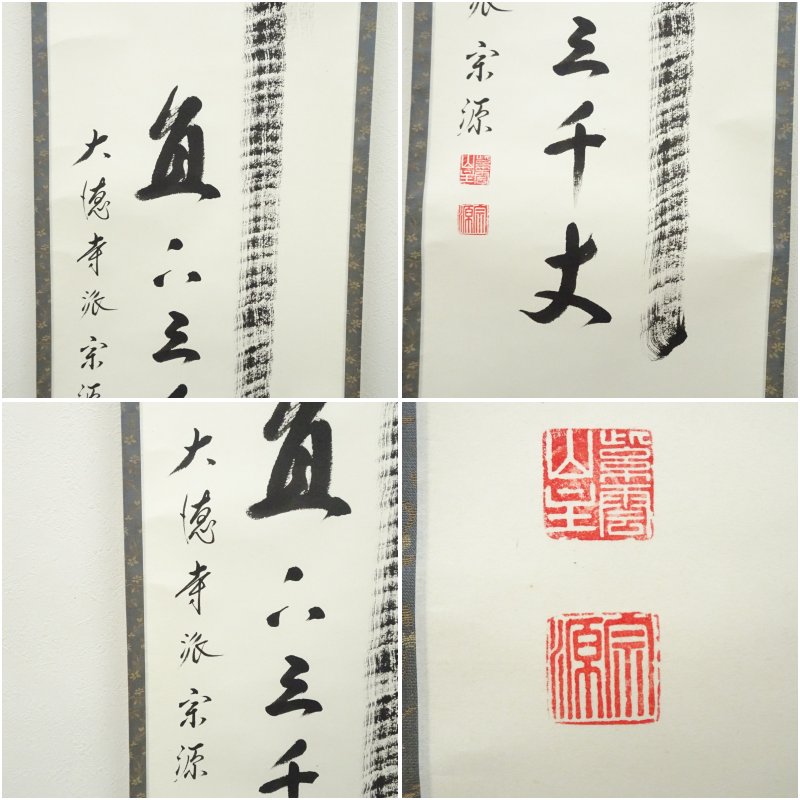 直下三
大徳寺派宗源
三千丈
派宗源
宗源
直下三千
大徳寺派宗源
宗源